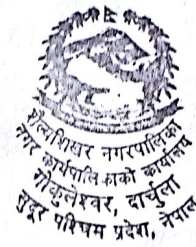 शैल्यशिखर नगरपालिका
नगर कार्यपालिकाको कार्यालय
गोकुलेश्वर, दार्चुला
सुदूर पश्चिम प्रदेश, नेपाल